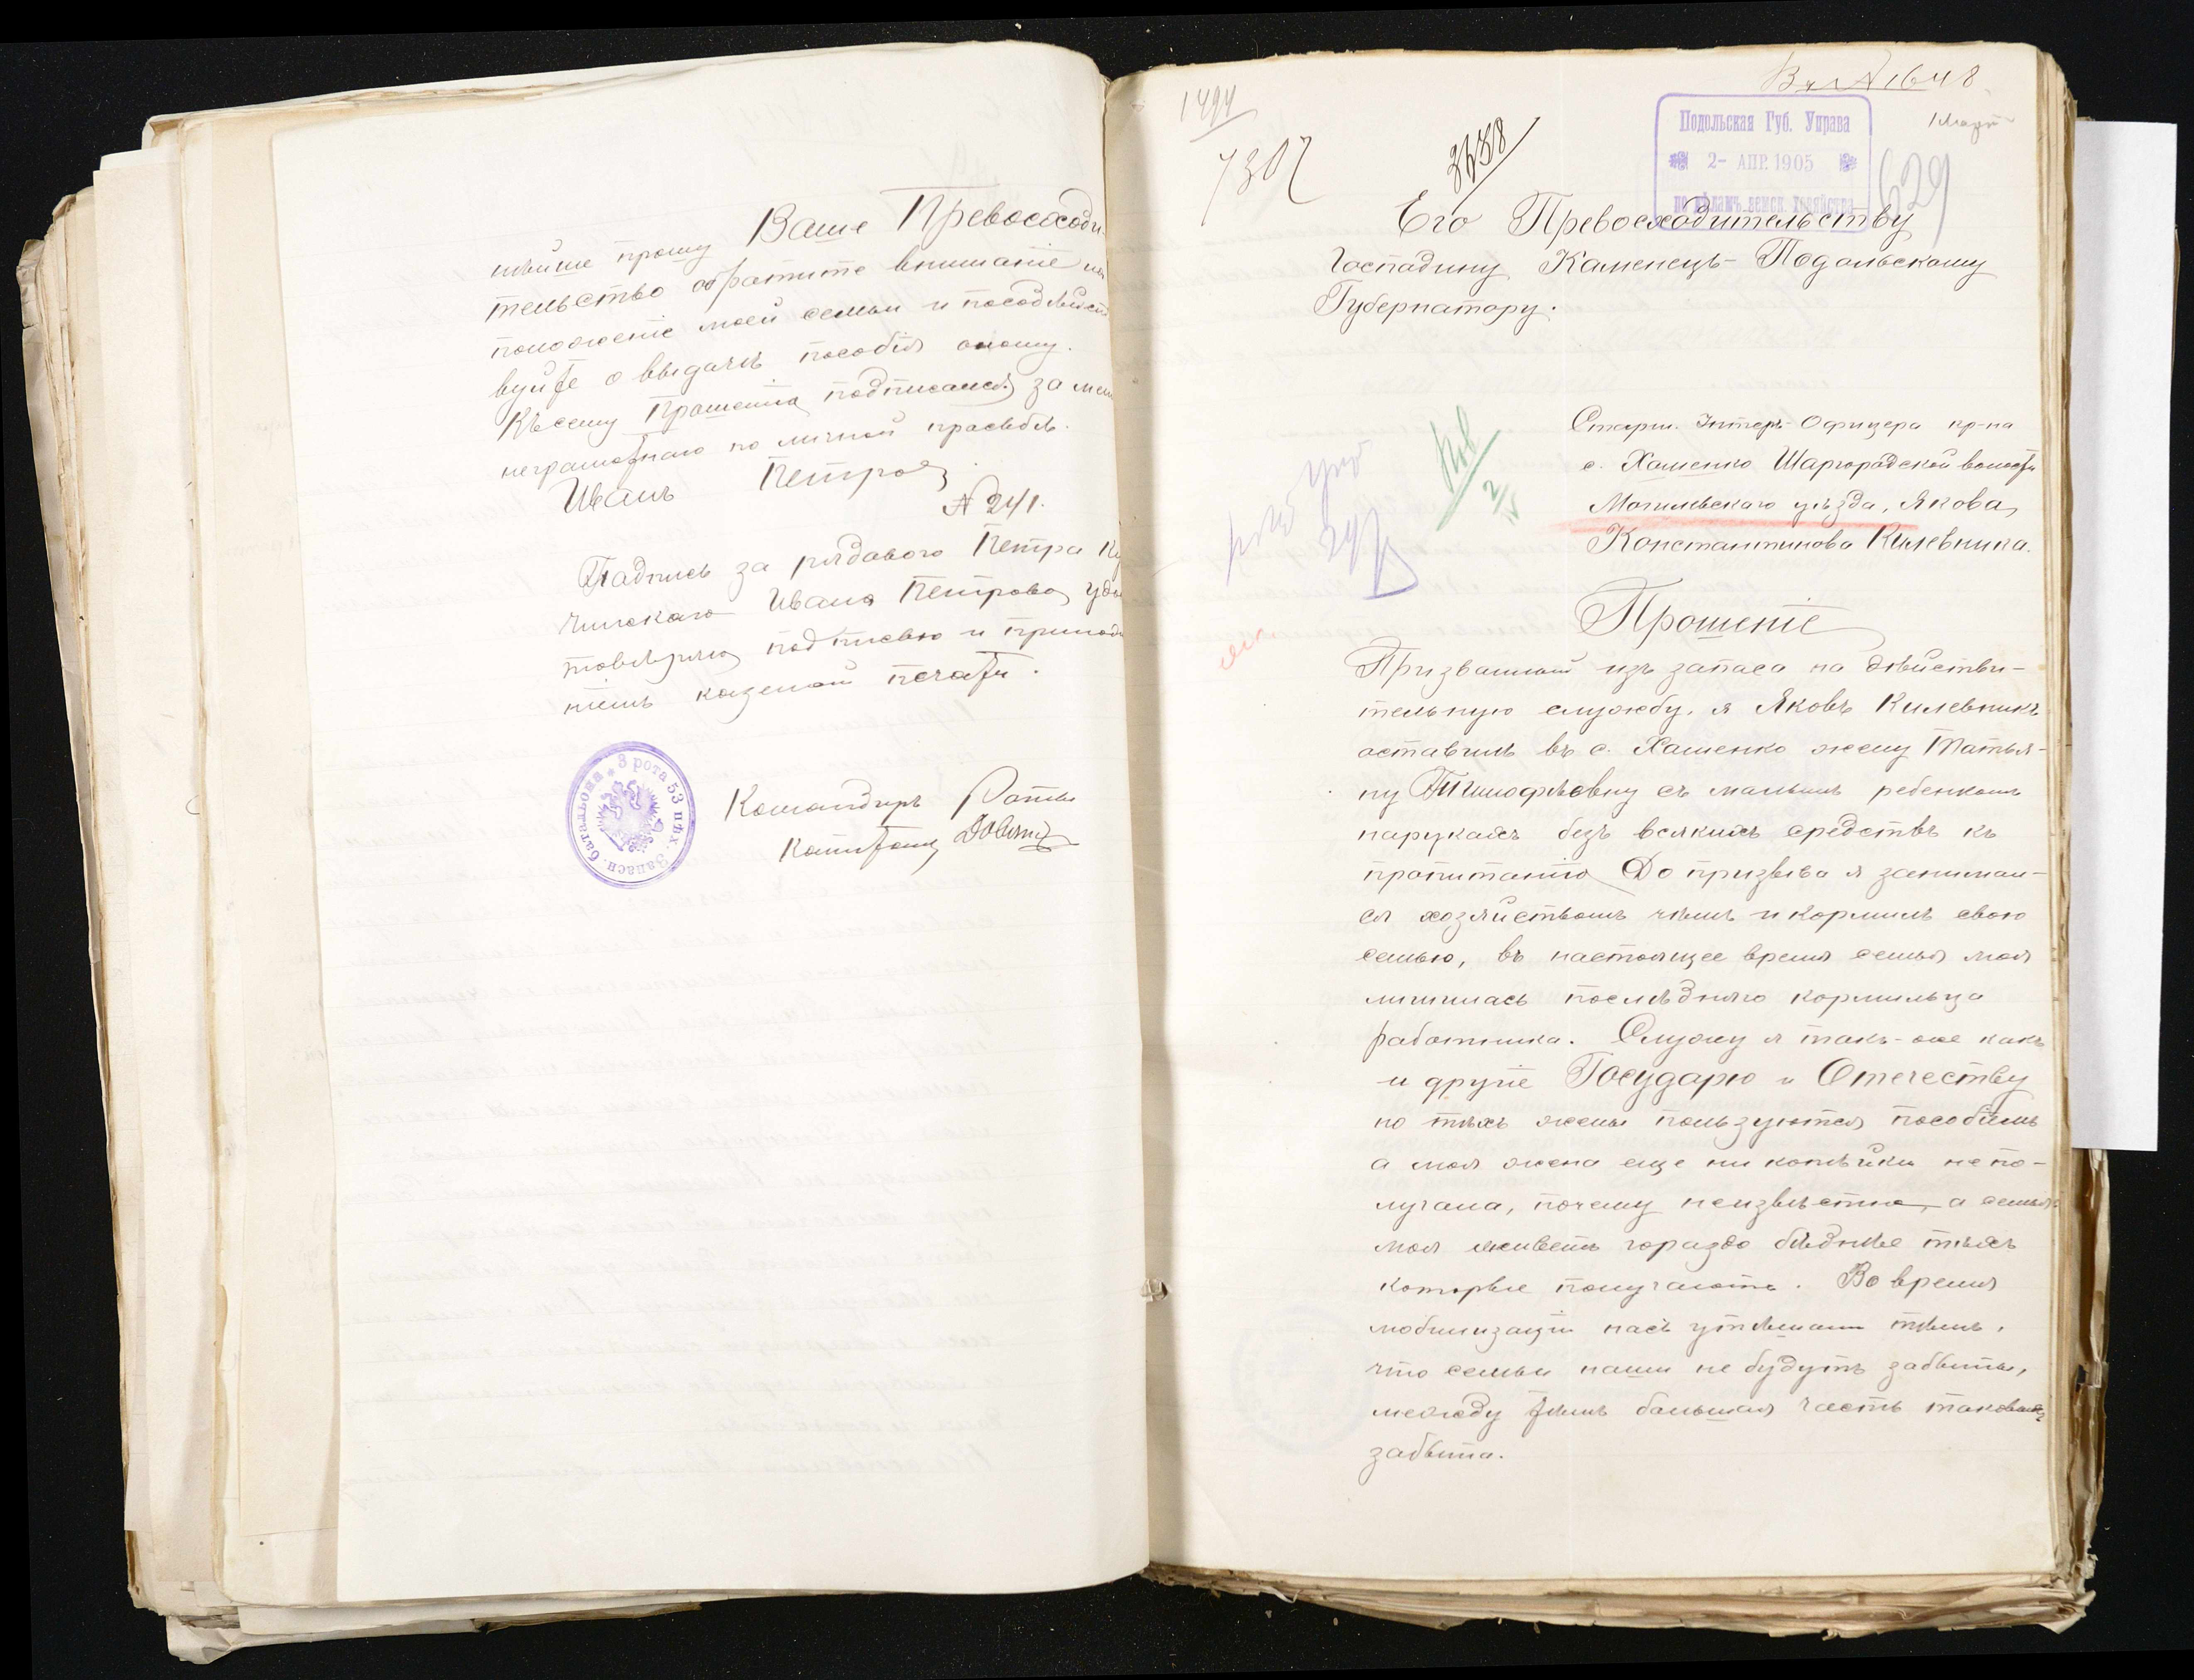 нѣйше прошу Ваше Превосходи
тельство обратите внимание на
положеніе моей семьи и посодѣйст
вуйте о выдачѣ пособія оному.
Къ сему Прошенію подписался за
неграмотнаго по личной прозьбѣ.
Иванъ Петровъ
№ 241.
Подпись за рядового Петра Ку
чинскаго Ивана Петрова, удо
товѣряю подписью и приложе
ніемъ казеной печати.
3 рота 53 пѣх. Запасн. баталіона
Командиръ Роты
Капитанъ
Вх № 1648
1 Март
1494
7307
Подольская Губ. Управа
2- АПР. 1905
по дѣламъ земск. хозяйства
629
Его Превосходительству
Господину Каменецъ-Подольскому
Губернатору.
Старш. Унтеръ-Офицера кр-на
с. Хоменко Шаргородской волости
Могилевскаго уѣзда, Якова
Константинова Килевника.
Прошеніе
Призванный изъ запаса на дѣйстви-
тельную службу, я Яковъ Килевникъ
оставилъ въ с. Хоменко жену Татья-
ну Тимофѣевну съ малымъ ребенкомъ
нарукахъ безъ всякихъ средствъ къ
пропитанію До призыва я занимал-
ся хозяйствомъ чѣмъ и кормилъ свою
семью, въ настоящее время семья моя
лишилась послѣдняго кормильца
работника. Служу я такъ-же какъ
и другіе Государю и Отечеству
но тѣхъ жены пользуются пособіемъ
а моя жена еще ни копѣйки не по-
лучала, почему неизвѣстно, а семья
моя живетъ гораздо бѣднѣе тѣхъ
которые получаютъ. Во время
мобилизаціи насъ утѣшали тѣмъ,
что семьи наши не будутъ забыты,
между тѣмъ большая часть таковыхъ
забыта.